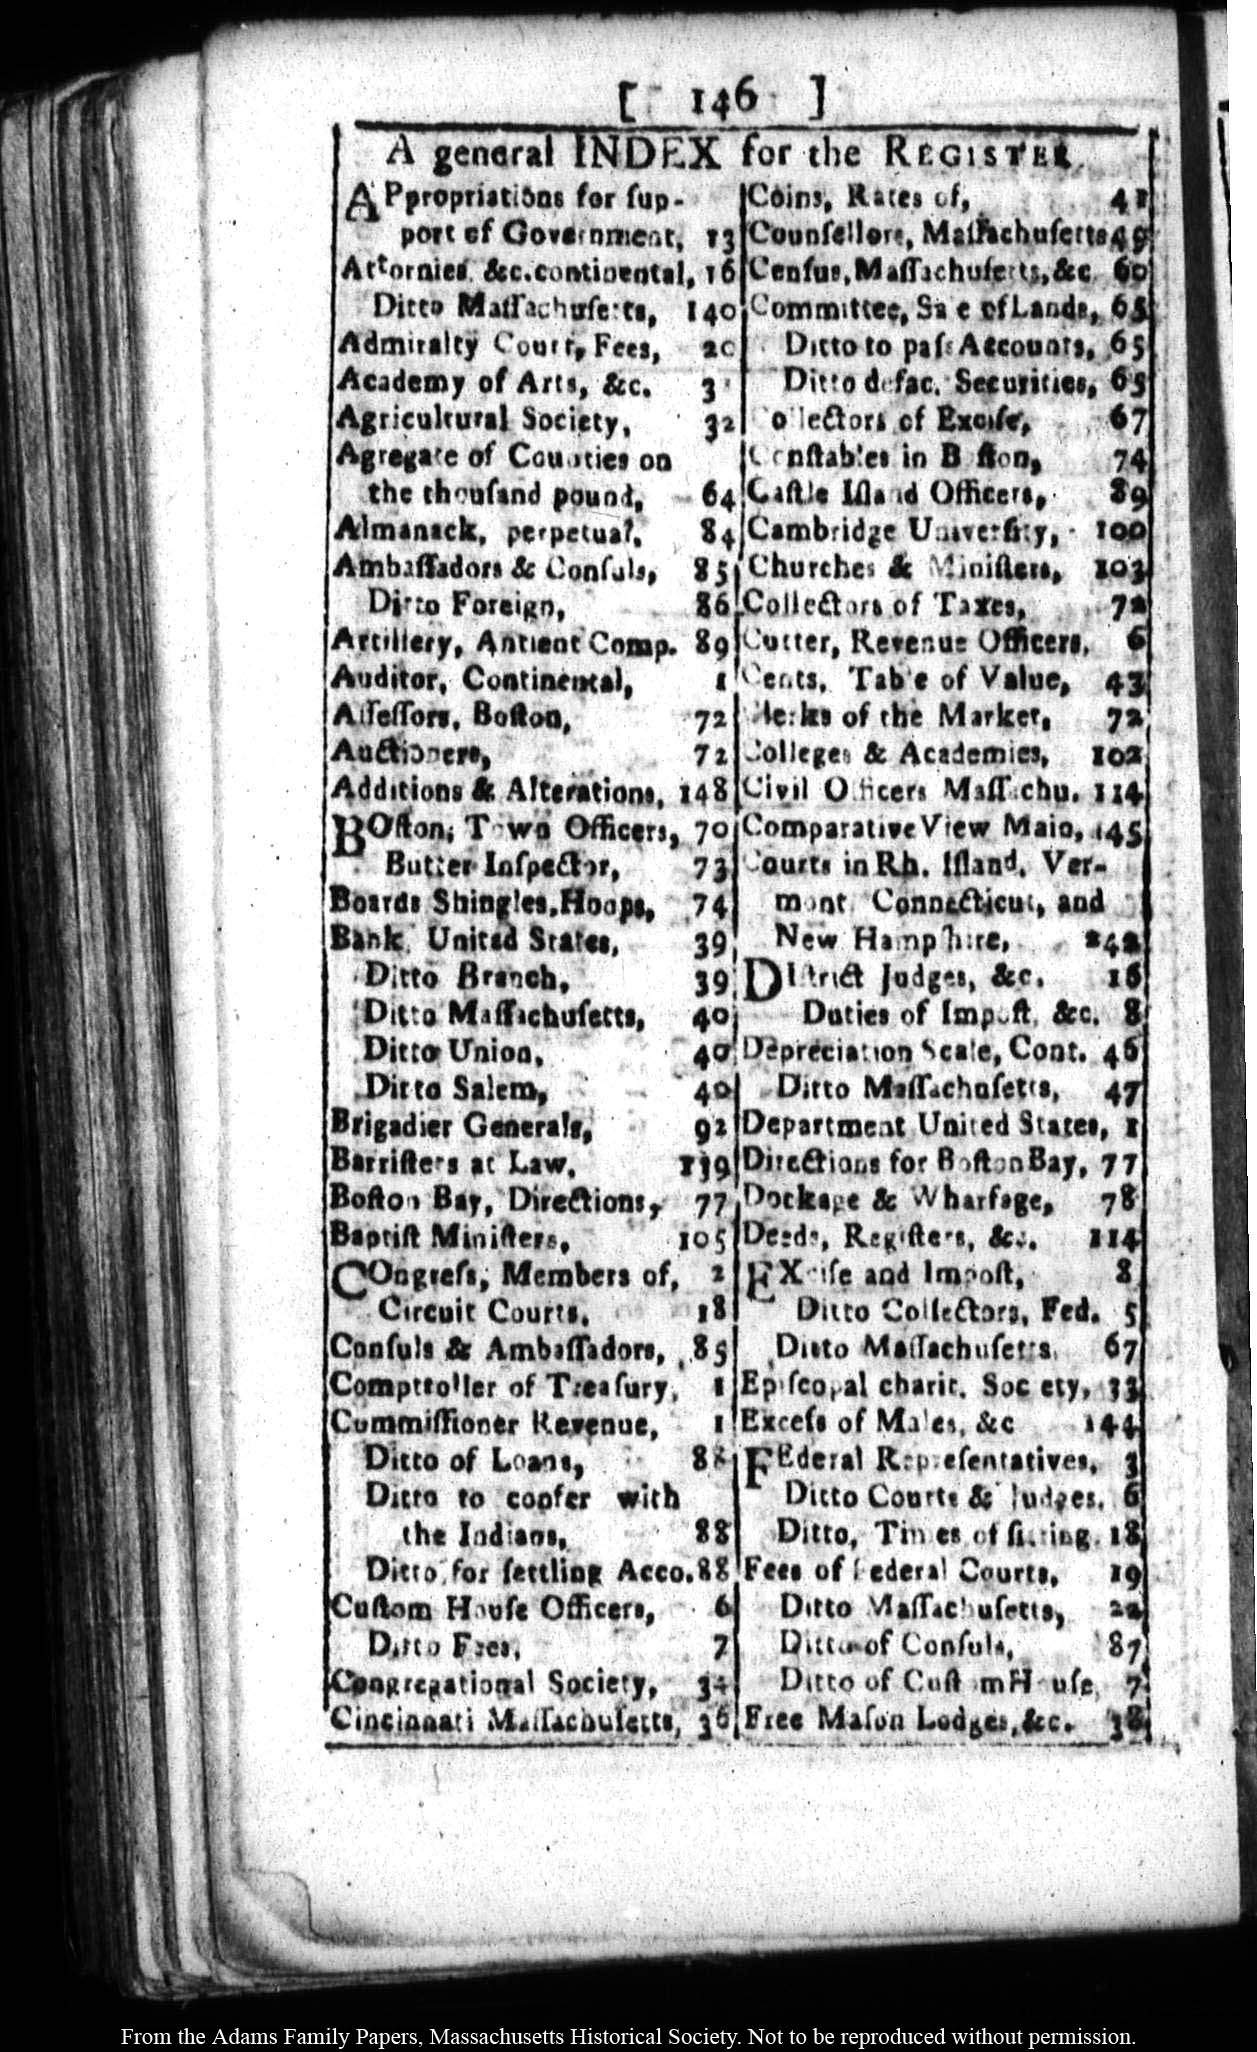 [ 146 ]
A general INDEX for the REGISTER.
APpropriations for ſup-
port of Government, 13
Attornies, &c. continental, 16
Ditto Maſſachuſetts, 140
Admiralty Court, Fees, 20
Academy of Arts, &c.
Agricultural Society, 32
Agregate of Counties on
the thouſand pound, 64
Almanack, perpetual, 84
Ambaſſadors & Conſuls, 85
Ditto Foreign, 86
Artillery, Antient Comp. 89
Auditor, Continental, 1
Aſſeſſors, Boſton, 72
Auctioners, 72
Additions & Alterations, 148
BOſton, Town Officers, 70
Butter Inſpector, 73
Boards Shingles, Hoops, 74
Bank, United States, 39
Ditto Branch, 39
Ditto Maſſachuſetts, 40
Ditto Union, 40
Ditto Salem, 40
Brigadier Generals, 92
Barriſters at Law, 139
Boſton Bay, Directions, 77
Baptiſt Miniſters, 105
COngreſs, Members of, 2
Circuit Courts, 18
Conſuls & Ambaſſadors, 85
Comptroller of Treaſury, 1
Commiſſioner Revenue, 1
Ditto of Loans, 88
Ditto to confer with
the Indians, 88
Ditto for ſettling Acco. 88
Cuſtom Houſe Officers, 6
Ditto Fees, 7
Congregational Society, 34
Cincinnati Maſſachuſetts, 36
Coins, Rates of, 41
Counſellors, Maſſachuſetts 49
Cenſus, Maſſachuſetts, &c. 60
Committee, Sale of Lands, 65
Ditto to paſs Accounts, 65
Ditto defac. Securities, 65
Collectors of Exciſe, 67
Conſtables in Boſton, 74
Caſtle Iſland Officers, 89
Cambridge Univerſity, 100
Churches & Miniſters, 103
Collectors of Taxes, 72
Cutter, Revenue Officers, 6
Cents, Table of Value, 43
Clerks of the Market, 72
Colleges & Academies, 102
Civil Officers Maſſachu. 114
Comparative View Main, 145
Courts in Rh. Iſland, Ver-
mont, Connecticut, and
New Hampſhire, 142
DIſtrict Judges, &c. 16
Duties of Impoſt, &c. 8
Depreciation Scale, Cont. 46
Ditto Maſſachuſetts, 47
Department United States, 1
Directions for Boſton Bay, 77
Dockage & Wharfage, 78
Deeds, Regiſters, &c. 114
EXciſe and Impoſt, 8
Ditto Collectors, Fed. 5
Ditto Maſſachuſetts, 67
Epiſcopal charit. Society, 33
Exceſs of Males, &c 144
FEderal Repreſentatives, 3
Ditto Courts & Judges, 6
Ditto, Times of ſitting, 18
Fees of Federal Courts, 19
Ditto Maſſachuſetts, 22
Ditto of Conſuls, 87
Ditto of Cuſtom Houſe, 7
Free Maſon Lodges, &c. 38
From the Adams Family Papers, Massachusetts Historical Society. Not to be reproduced without permission.